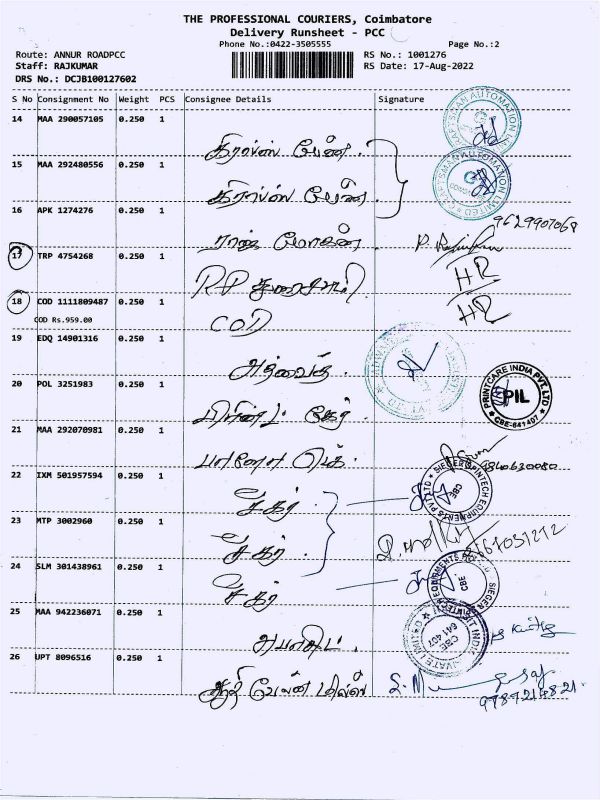 THE PROFESSIONAL COURIERS, Coimbatore
Delivery Runsheet - PCC
Phone No.:0422-3505555
Page No.:2
Route: ANNUR ROADPCC
RS No.: 1001276
Staff: RAJKUMAR
RS Date: 17-Aug-2022
DRS No.: DCJB100127602
S No Consignment No Weight PCS Consignee Details Signature
14 MAA 290057105 0.250 1
15 MAA 292480556 0.250 1
16 APK 1274276 0.250 1
9629907068
ராஜ மோகன்
17 TRP 4754268 0.250 1
HR
RP துரைசாமி
18 COD 1111809487 0.250 1
HR
COD Rs.959.00
COD
19 EDQ 14901316 0.250 1
அத்வைத்
20 POL 3251983 0.250 1
PRINTCARE INDIA PVT LTD
PIL
CBE-641407
பிரிண்ட் கேர்
21 MAA 292070981 0.250 1
22 IXM 501957594 0.250 1
SIEGER SPINTECH EQUIPMENTS PVT LTD
CBE
சீகர்
23 MTP 3002960 0.250 1
சீகர்
24 SLM 301438961 0.250 1
SIEGER SPINTECH EQUIPMENTS
CBE
சீகர்
25 MAA 942236071 0.250 1
CBE
641 407
26 UPT 8096516 0.250 1
ஆதி வேலன் மில்ஸ்